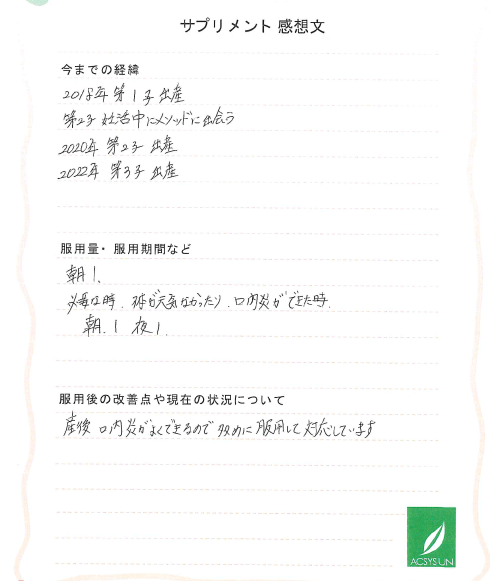 サプリメント 感想文
今までの経緯
2018年 第1子 出産
第2子 妊活中にメソッドに出会う
2020年 第2子 出産
2022年 第3子 出産
服用量・服用期間など
朝1、
必要な時、体が元気なかったり、口内炎ができた時、
朝、1 夜1、
服用後の改善点や現在の状況について
産後 口内炎がよくできるので 多めに 服用して 対応しています
ACSYSUN